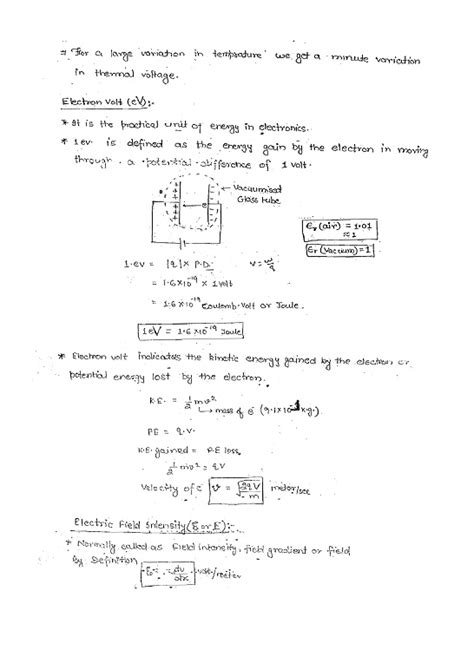 ⇒ For a large variation in temprature we get a minute variation
in thermal voltage.
Electron Volt (eV):-
* It is the practical unit of energy in electronics.
* 1ev is defined as the energy gain by the electron in moving
through a potential difference of 1 volt.
Vacuumised
Glass tube
εr (air) = 1.01
≈ 1
εr (Vacuum) = 1
1.ev = |q| × P.D. V = w/q
= 1.6×10^-19 × 1 Volt
= 1.6×10^-19 Coulomb-Volt or Joule.
1eV = 1.6×10^-19 Joule
* Electron volt indicates the kinetic energy gained by the electron or
potential energy lost by the electron.
K.E. = 1/2 mv²
↳ mass of e⁻ (9.1×10^-31 k.g.)
PE = q.V.
K.E. gained = P.E loss
1/2 mv² = qV
Velocity of e⁻ v = √(2qV/m) meter/sec
Electric Field Intensity (ε or E):-
* Normally called as Field intensity, field gradient or field
By Definition
= dv/dx volt/meter